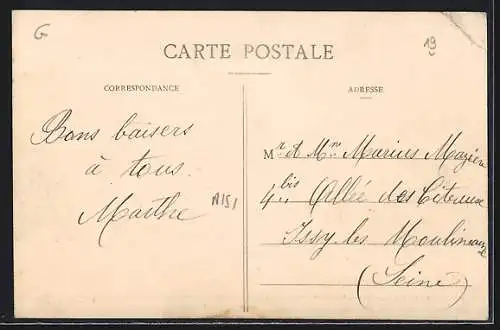 G
19
CARTE POSTALE
CORRESPONDANCE
Bons baisers
à tous
Marthe
A151
ADRESSE
Mr et Mme Marius Mazière
4 bis Allée des Citeaux
Issy les Moulineaux
(Seine)